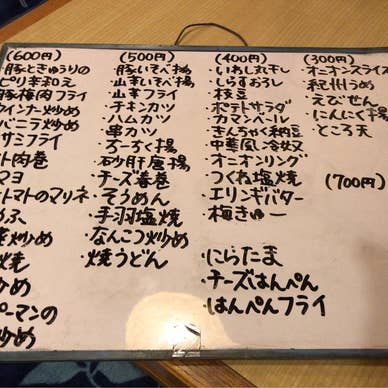 (600円)
豚ときゅうりの
ピリ辛和え
豚梅肉フライ
ウィンナー炒め
バニラ炒め
ササミフライ
ト肉巻
マヨ
トマトのマリネ
炒め
焼
炒め
ピーマンの
炒め
(500円)
・豚いそべ揚
・山芋いそべ揚
・山芋フライ
・チキンカツ
・ハムカツ
・串カツ
・ちーちく揚
・砂肝唐揚
・チーズ春巻
・そうめん
・手羽塩焼
・なんこつ炒め
・焼うどん
(400円)
・いわし丸干し
・しらすおろし
・枝豆
・ポテトサラダ
・カマンベール
・きんちゃく納豆
・中華風冷奴
・オニオンリング
・つくね塩焼
・エリンギバター
・梅きゅー
・にらたま
・チーズはんぺん
・はんぺんフライ
(300円)
・オニオンスライス
・紀州うめ
・えびせん
・にんにく揚
・ところ天
(700円)